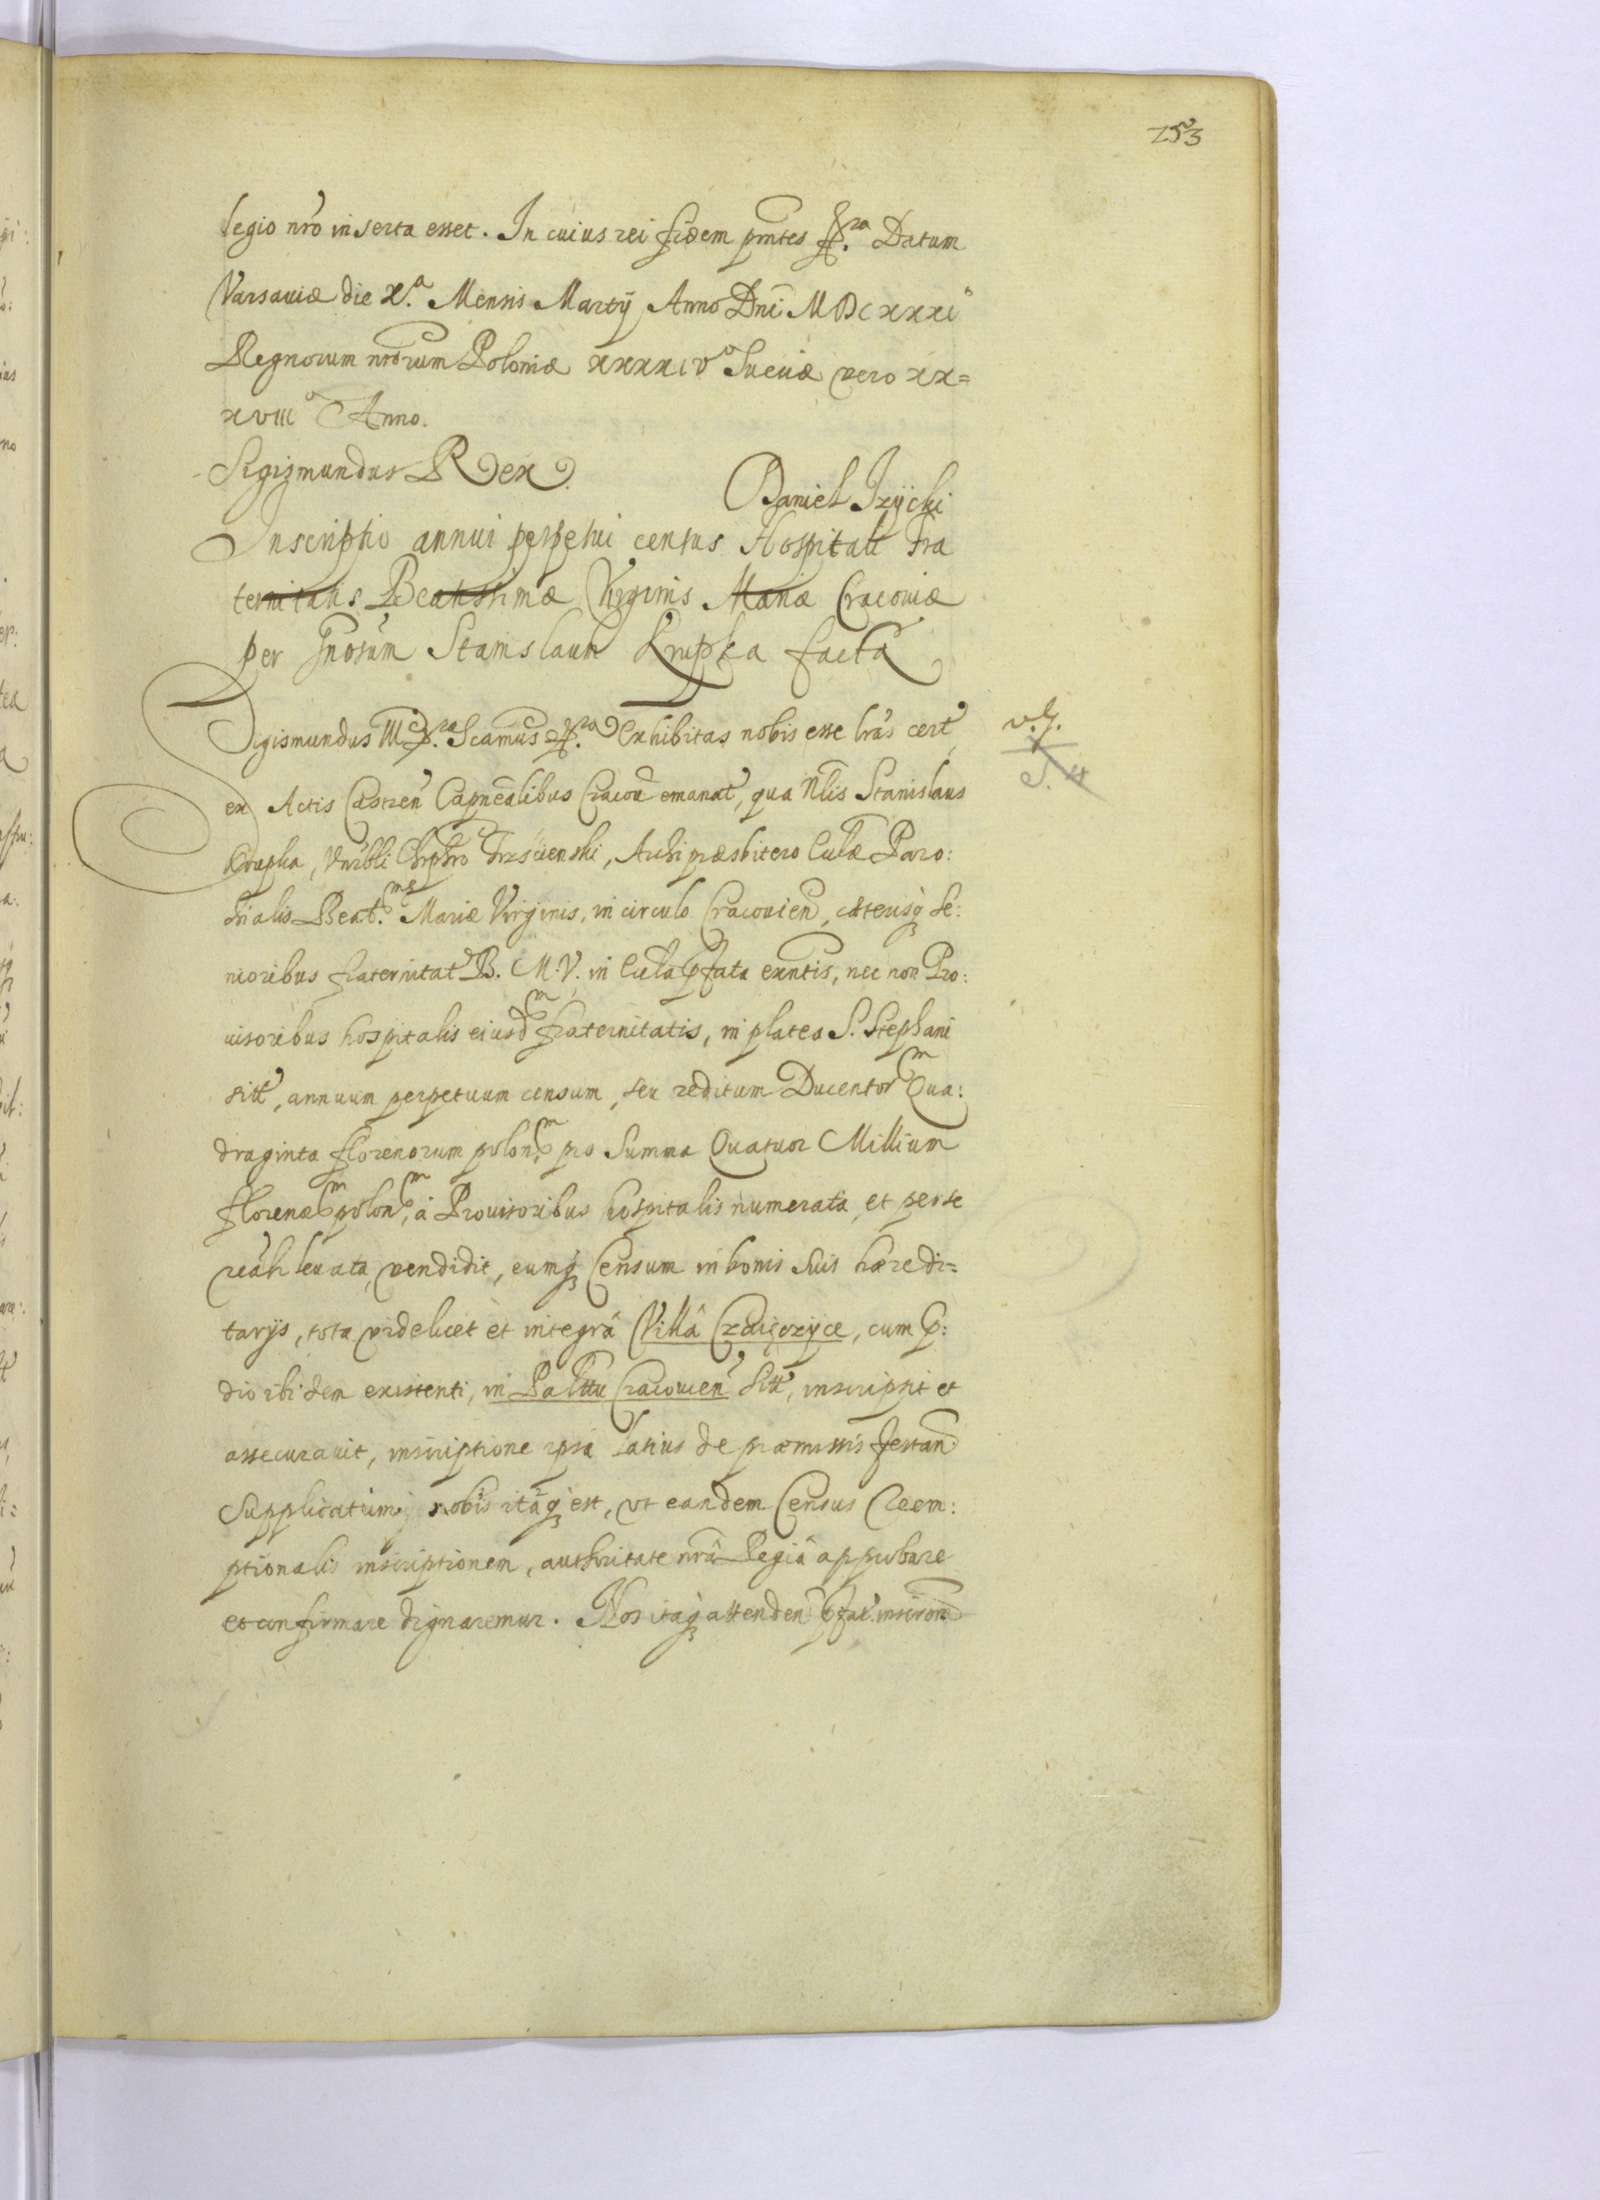 253
legio nro inserta esset. In cuius rei fidem pntes Datum
Varsauiæ die X.a Mensis Martij Anno Dni MDCXXXI
Regnorum nrorum Poloniæ XXXXIV Sueciæ vero XX=
XVIII Anno.
Sigismundus Rex.
Daniel Irzycki
Inscriptio annui perpetui census Hospitali Fra
ternitatis Beatissimæ Virginis Mariæ Cracoviæ
per Gnosum Stanislaum Krupka facta
Sigismundus III Exhibitas nobis esse lras cert
v. g.
S. H
ex Actis Castren Capnealibus Cracou emanat, qua Nlis Stanislaus
Krupka, Vnrbli Chrphro Trzscienski, Archipræsbitero Cculæ Paro:
chialis Beat.mæ Mariæ Virginis, in circulo Cracouien, cæterisq Se:
nioribus fraternitat B. M. V. in Ccula pfata exntis, nec non Pro:
uisoribus hospitalis eiusdm fraternitatis, in platea S. Stephani
sitt, annuum perpetuum censum, seu reditum Ducentorm Qua:
draginta florenorum polon,m pro Summa Quatuor Millium
florenorm polon,m à Prouisoribus hospitalis numerata, et per se
realr leuata, vendidit, eumq Censum in bonis suis hæredi=
tarijs, tota videlicet et integrâ Villâ, cum p:
dio ibidem existenti, in Palttu Cracouien sitt, inscripsit et
assecurauit, inscriptione ipsa latius de præmissis testan.
Supplicatum nobis itaq est, vt eandem Census Reem:
ptionalis inscriptionem, authoritate nrâ Regiâ approbare
et confirmare dignaremur. Nos itaq attenden pfat. inscron